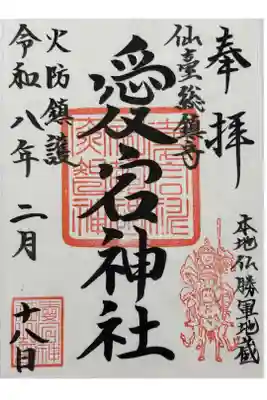 奉拝
仙臺総鎮守
愛宕神社
火防鎮護
令和八年 二月
十八日
本地仏勝軍地蔵